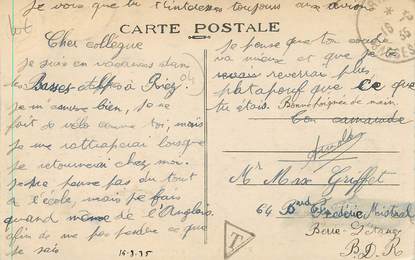 Je vois que tu t'intéresses toujours aux avions
CARTE POSTALE
Cher collègue
je suis en vacances dans
les Basses-Alpes à Riez
je m'amuse bien, je ne
fait de vélo comme toi, mais
je me rattraperai lorsque
je retournerai chez moi.
Je ne pense pas du tout
à l'école, mais je fais
quand même de l'Anglais
afin de ne pas perdre ce que
je sais
16-9-35
Je pense que ton coude
va mieux et que je
reverrai plus
patapouf que ce que
tu étais. Bonne poignée de main.
Ton camarade
Mr Max Griffet
64 Bard Frédéric Mistral
Berre-l'Etang
B.D.R
T